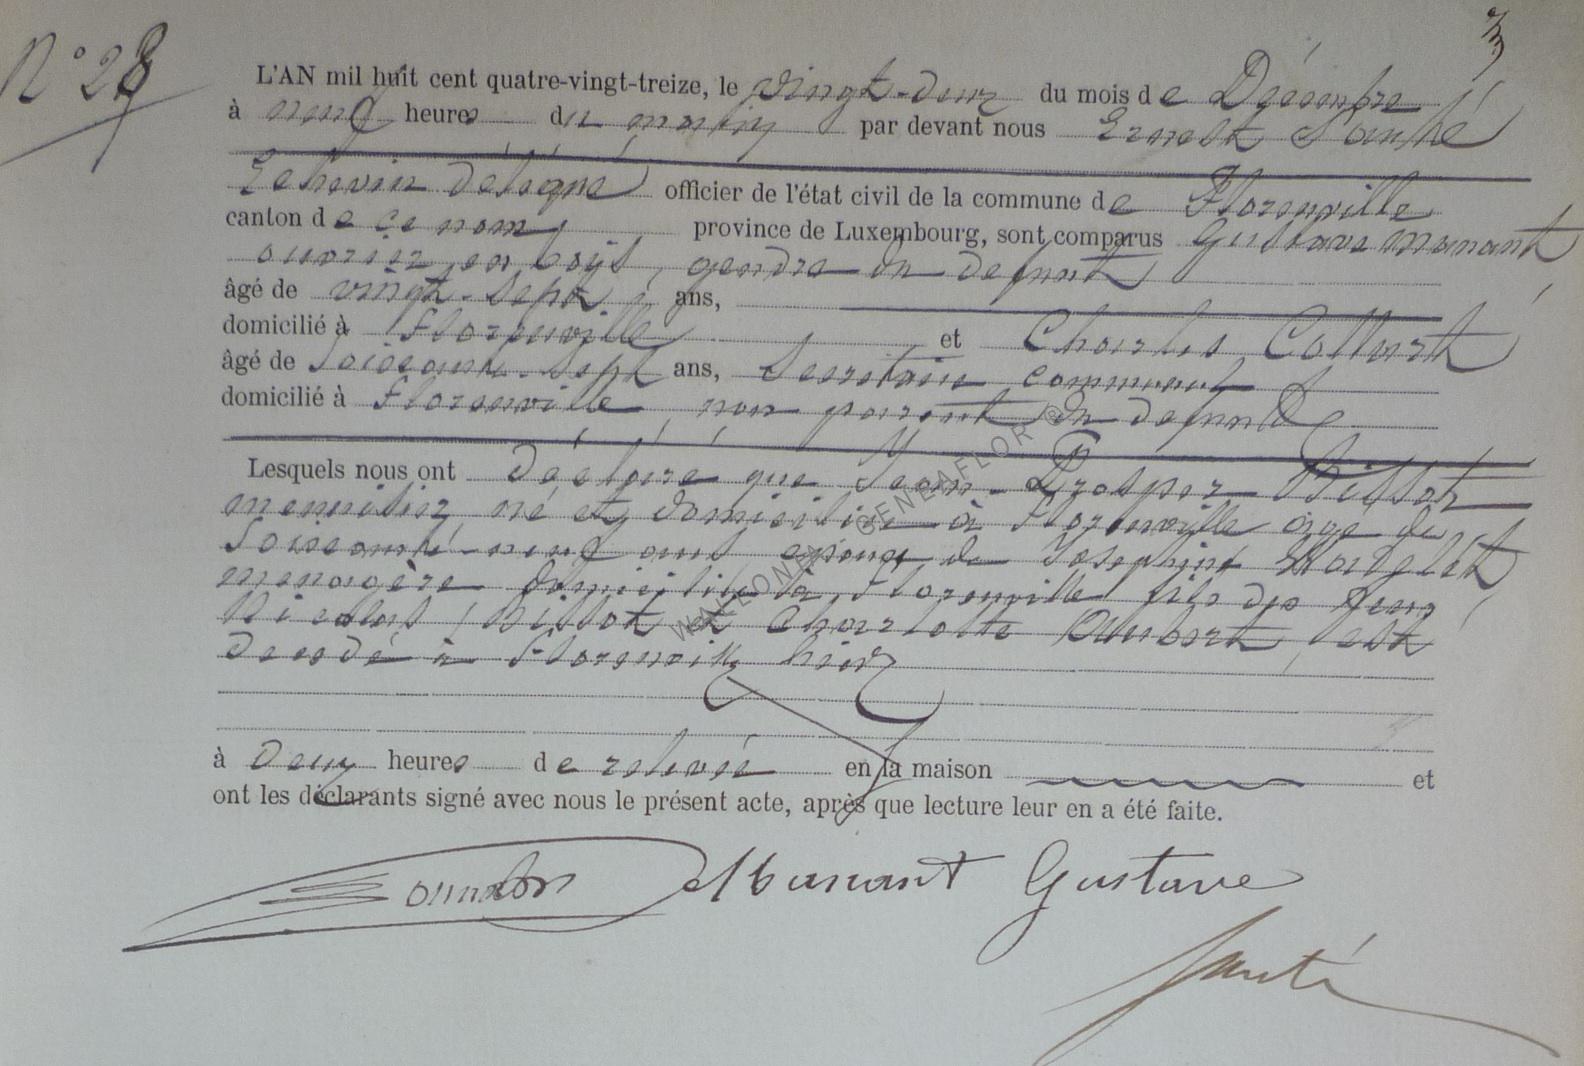 N° 28
L'AN mil huit cent quatre-vingt-treize, le vingt-deux du mois de Décembre
à neuf heures du matin par devant nous Ernest Santé
Echevin délégué officier de l'état civil de la commune de Florenville
canton de ce nom, province de Luxembourg, sont comparus Gustave Manant
ouvrier en bois, gendre du defunt,
âgé de vingt-sept ans,
domicilié à Florenville et Charles
âgé de Soixante-sept ans, Secretaire communal
domicilié à Florenville, non parent du defunt
Lesquels nous ont déclaré que Jean-Prosper Bissot
menuisier, né et domicilié à Florenville âgé de
Soixante-neuf ans époux de Josephine
menagère domiciliée à Florenville fils des feus
Nicolas Bissot et Charlotte est
decedé à Florenville hier
à Deux heures de relevée en la maison et
ont les déclarants signé avec nous le présent acte, après que lecture leur en a été faite.
Manant Gustave
Santé
WALLONIA GENEAFLOR ©